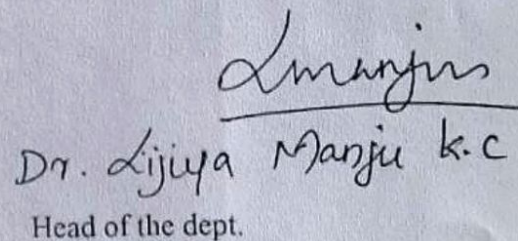 Lmanju
Dr. Lijiya Manju K.C
Head of the dept.